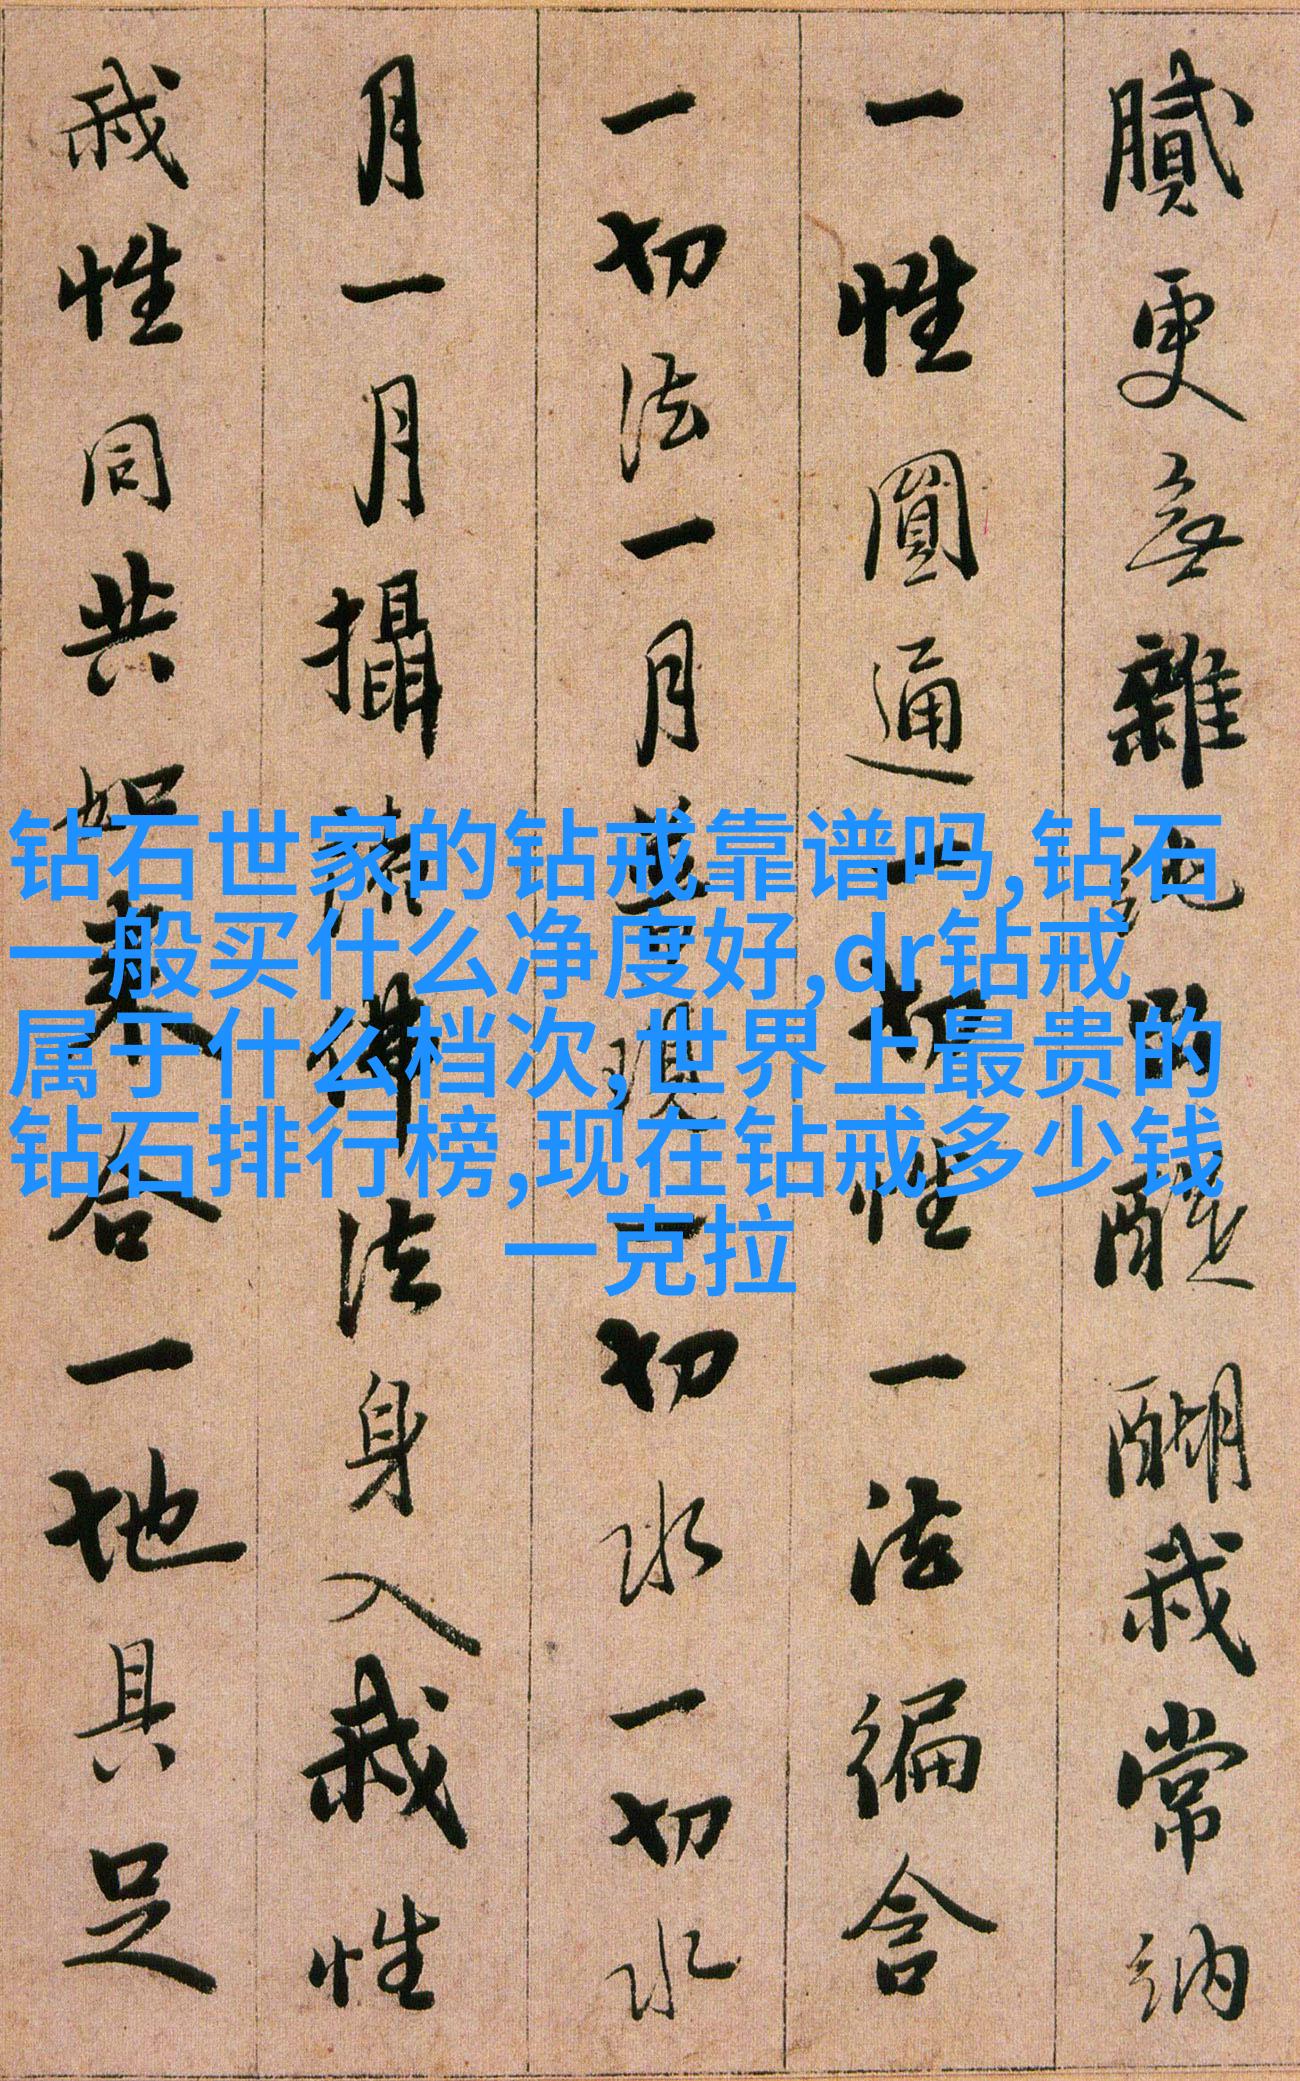 钻石世家的钻戒靠谱吗,钻石
一般买什么净度好,dr钻戒
属于什么档次,世界上最贵的
钻石排行榜,现在钻戒多少钱
一克拉
膩更無雜純即醍醐我常納
一性圓通一切性一法徧含
一切法一月普現一切水一切水
月一月攝諸佛法身入我性
我性同共如來合一地具足